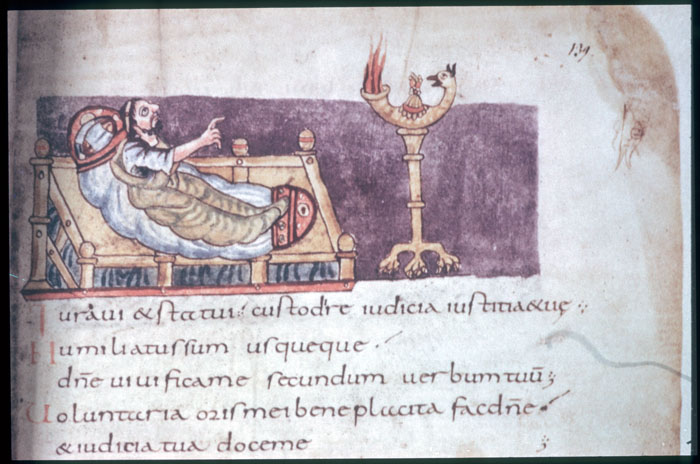 139
Iuravi & statui custodire iudicia iustitiae tuę
Humiliatus sum usqueque
dn̄e vivifica me secundum verbum tuū
Voluntaria oris mei beneplacita fac dn̄e
& iudicia tua doce me